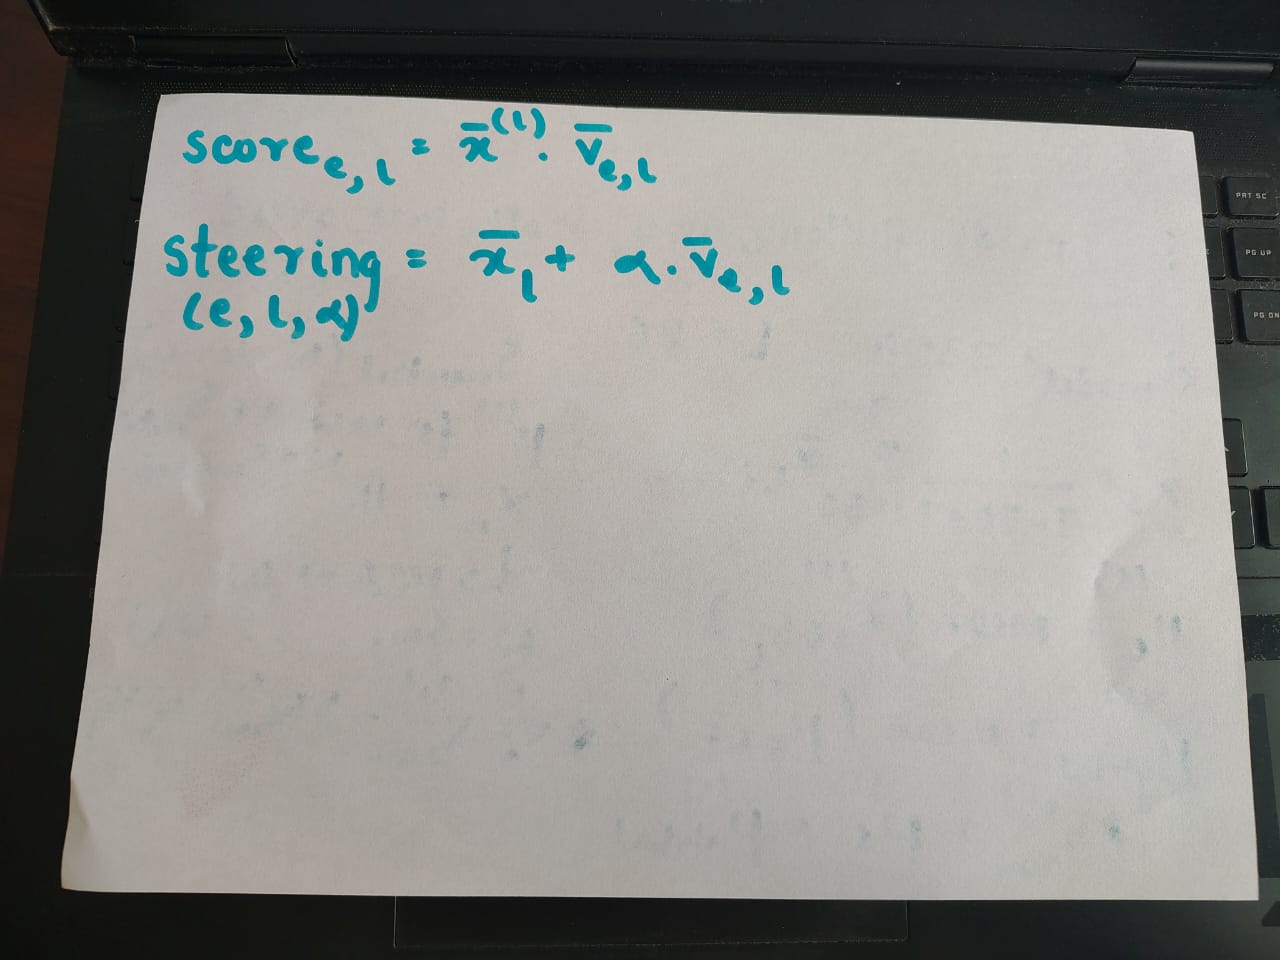 score_{e,l} = x̄^{(l)} . v̄_{e,l}
steering = x̄_l + α . v̄_{e,l}
(e, l, α)
PRT SC
PG UP
PG DN